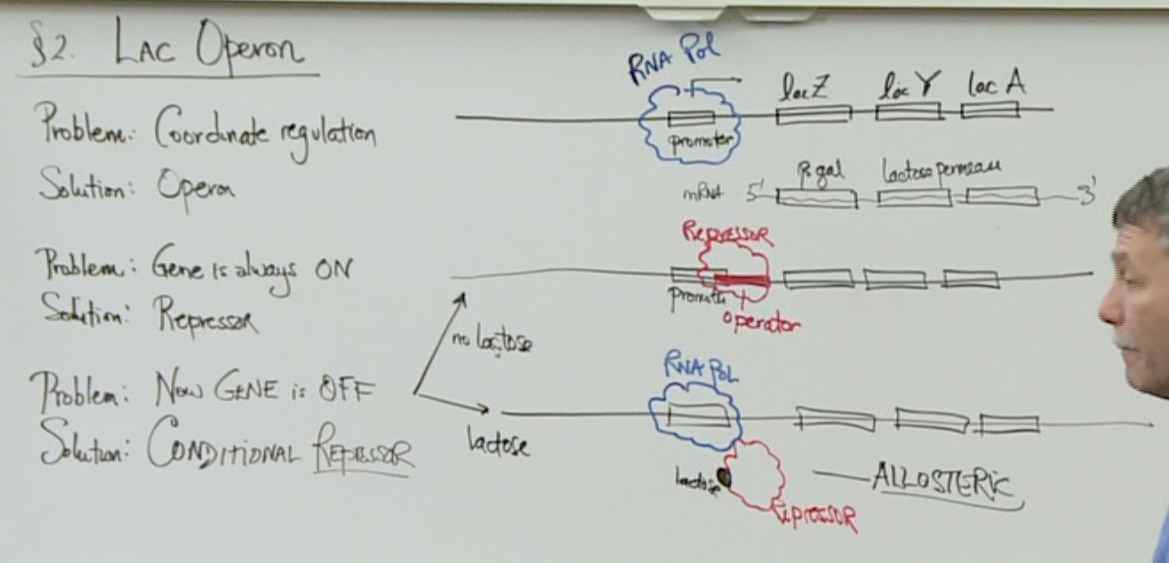 §2. LAC Operon
Problem: Coordinate regulation
Solution: Operon
Problem: Gene is always ON
Solution: Repressor
Problem: Now GENE is OFF
Solution: CONDITIONAL REPRESSOR
no lactose
lactose
RNA Pol
promoter
lacZ lac Y lac A
β gal lactose permease
mRNA 5' 3'
REPRESSOR
promoter
operator
RNA POL
lactose
REPRESSOR
ALLOSTERIC